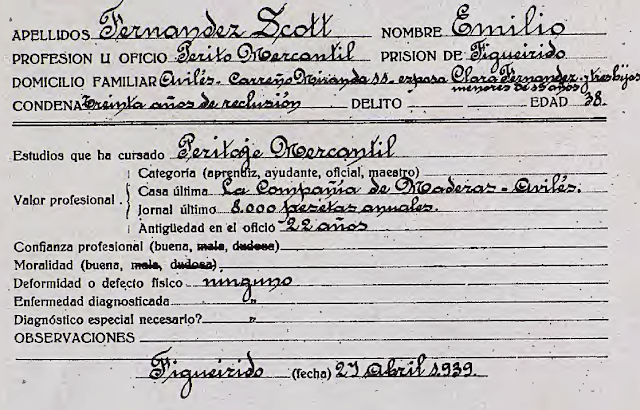 APELLIDOS Fernandez Scott NOMBRE Emilio
PROFESION U OFICIO Perito Mercantil PRISION DE Figueirido
DOMICILIO FAMILIAR Avilés - Carreño Miranda esposa Clara Fernandez y tres hijos
menores de 15 años
CONDENA Treinta años de reclusión DELITO EDAD 38.
Estudios que ha cursado Peritaje Mercantil
Categoría (aprendiz, ayudante, oficial, maestro)
Valor profesional. Casa última La Compañia de Maderas - Avilés.
Jornal último 8.000 pesetas anuales.
Antigüedad en el oficio 22 años
Confianza profesional (buena, mala, dudosa)
Moralidad (buena, mala, dudosa)
Deformidad o defecto físico ninguno
Enfermedad diagnosticada "
Diagnóstico especial necesario? "
OBSERVACIONES
Figueirido (fecha) 27 Abril 1939.